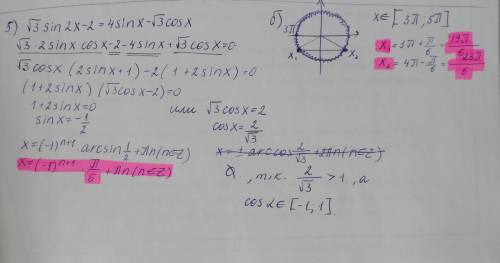 5) √3 sin 2x - 2 = 4sinx - √3 cosx
√3 · 2sinx cosx - 2 - 4sinx + √3 cosx = 0
√3 cosx (2sinx + 1) - 2 (1 + 2sinx) = 0
(1 + 2sinx) (√3 cosx - 2) = 0
1 + 2sinx = 0 или √3 cosx = 2
sinx = -1/2 cosx = 2/√3
x = (-1)ⁿ⁺¹ · arcsin 1/2 + πn (n∈Z)
x = (-1)ⁿ⁺¹ π/6 + πn (n∈Z)
x = ± arccos 2/√3 + πn (n∈Z)
∅, т.к. 2/√3 > 1, а
cos α ∈ [-1; 1]
б)
3π
x₁ x₂
x ∈ [3π; 5π]
x₁ = 3π + π/6 = 19π/6
x₂ = 4π - π/6 = 23π/6